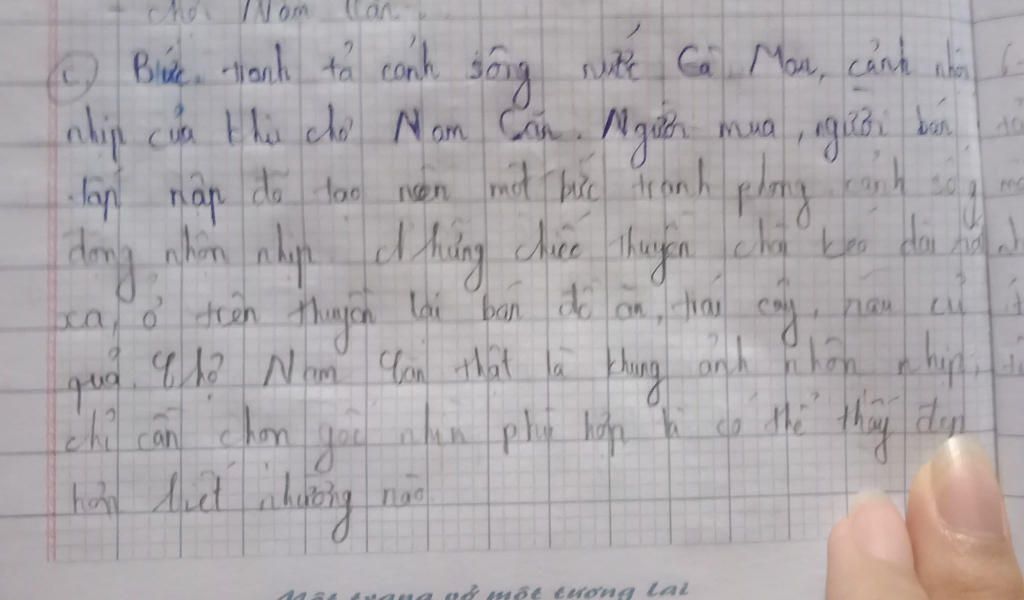 - chợ Năm Căn.
c) Bức tranh tả cảnh sông nước Cà Mau, cảnh nhộn
nhịp của khu chợ Năm Căn. Người mua, người bán
tấp nập đã tạo nên một bức tranh phong cảnh sống
động nhộn nhịp. Những chiếc thuyền chài kéo dài
xa, ở trên thuyền lại bán đồ ăn, trái cây, rau củ
quả. Chợ Năm Căn thật là khung ảnh nhộn nhịp,
chỉ cần chọn góc nhìn phù hợp là có thể thấy đẹp
hơn biết nhường nào
một tương lai